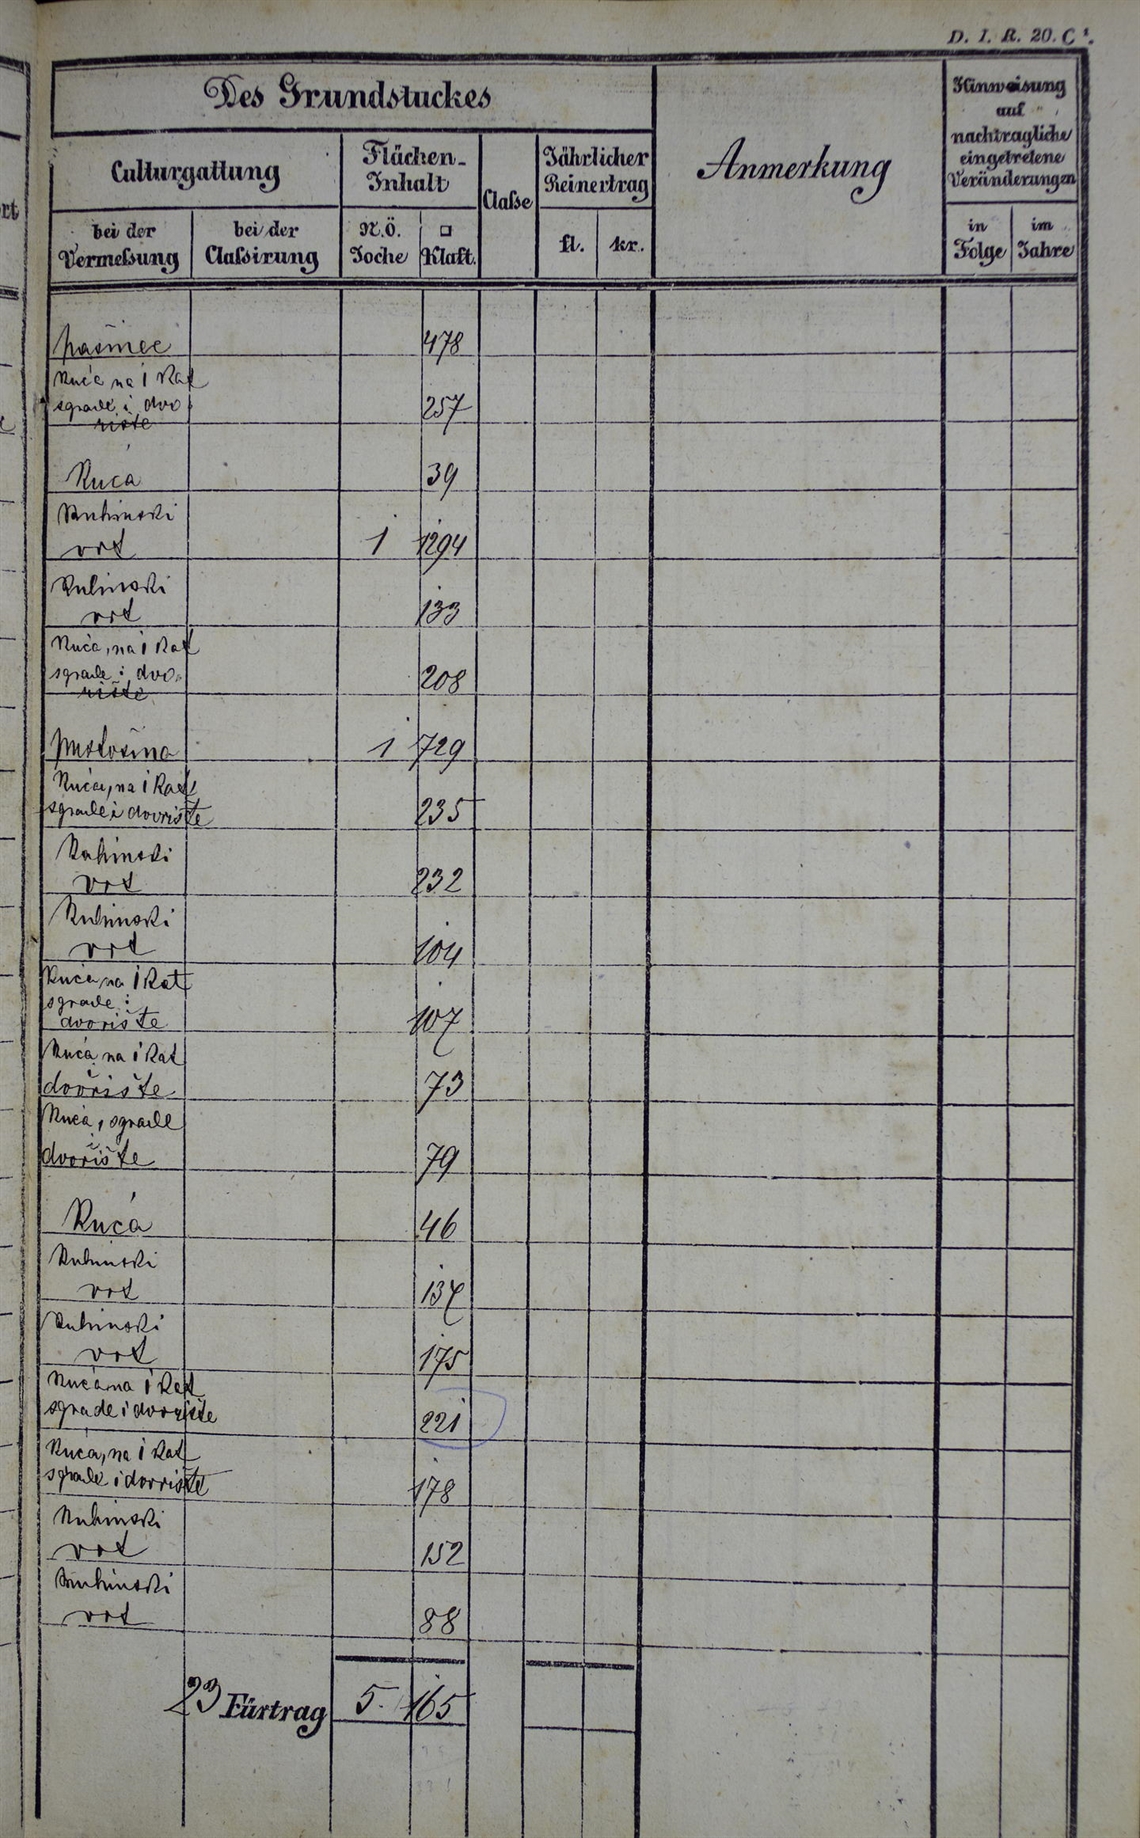 D. I. R. 20. C¹.
Des Grundstuckes
Anmerkung
Hinweisung
auf
nachtragliche
eingetretene
Veränderungen
Culturgattung
Flächen-
Inhalt
Claße
Jährlicher
Reinertrag
bei der
Vermeßung
bei der
Claßirung
N.Ö.
Joche
□
Klaft.
fl.
kr.
in
Folge
im
Jahre
pašnec 478
Kuća na 1 Kat
sgrade i dvo 257
rište
Kuća 39
Kuhinski
vrt 1 1294
Kuhinski
vrt 133
Kuća, na 1 Kat
sgrade i dvo 208
rište
pustošina 1 729
Kuća, na 1 Kat,
sgrade i dvorište 235
Kuhinski
vrt 232
Kuhinski
vrt 104
Kuća na 1 Kat
sgrade i
dvorište 107
Kuća na 1 Kat
i
dvorište 73
Kuća, sgrade
i
dvorište 79
Kuća 46
Kuhinski
vrt 137
Kuhinski
vrt 175
Kuća na 1 Kat
sgrade i dvorište 221
Kuća, na 1 Kat
sgrade i dvorište 178
Kuhinski
vrt 152
Kuhinski
vrt 88
23 Fürtrag 5 165